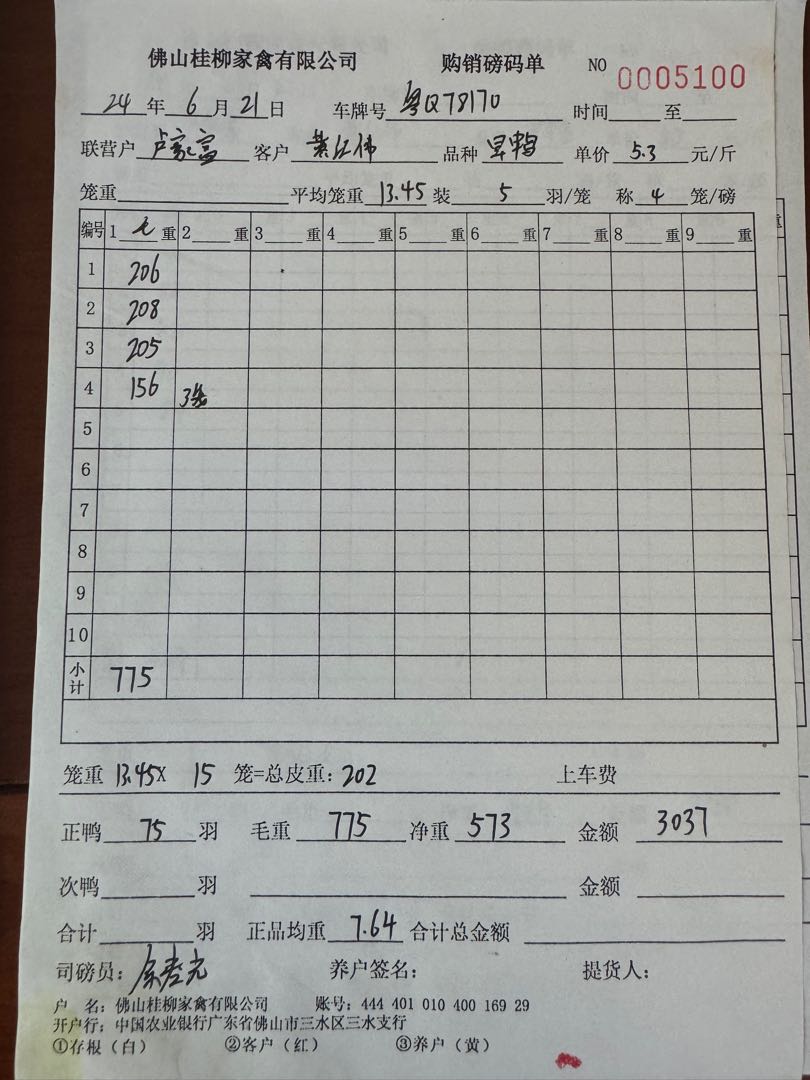 佛山桂柳家禽有限公司 购销磅码单 NO 0005100
24 年 6 月 21 日 车牌号 粤Q78170 时间 至
联营户 卢家富 客户 黄江伟 品种 旱鸭 单价 5.3 元/斤
笼重 平均笼重 13.45 装 5 羽/笼 称 4 笼/磅
编号 1 毛 重 2 重 3 重 4 重 5 重 6 重 7 重 8 重 9 重
1 206
2 208
3 205
4 156 3笼
5
6
7
8
9
10
小计 775
笼重 13.45X 15 笼=总皮重: 202 上车费
正鸭 75 羽 毛重 775 净重 573 金额 3037
次鸭 羽 金额
合计 羽 正品均重 7.64 合计总金额
司磅员: 养户签名: 提货人:
户 名: 佛山桂柳家禽有限公司 账号: 444 401 010 400 169 29
开户行: 中国农业银行广东省佛山市三水区三水支行
①存根（白） ②客户（红） ③养户（黄）